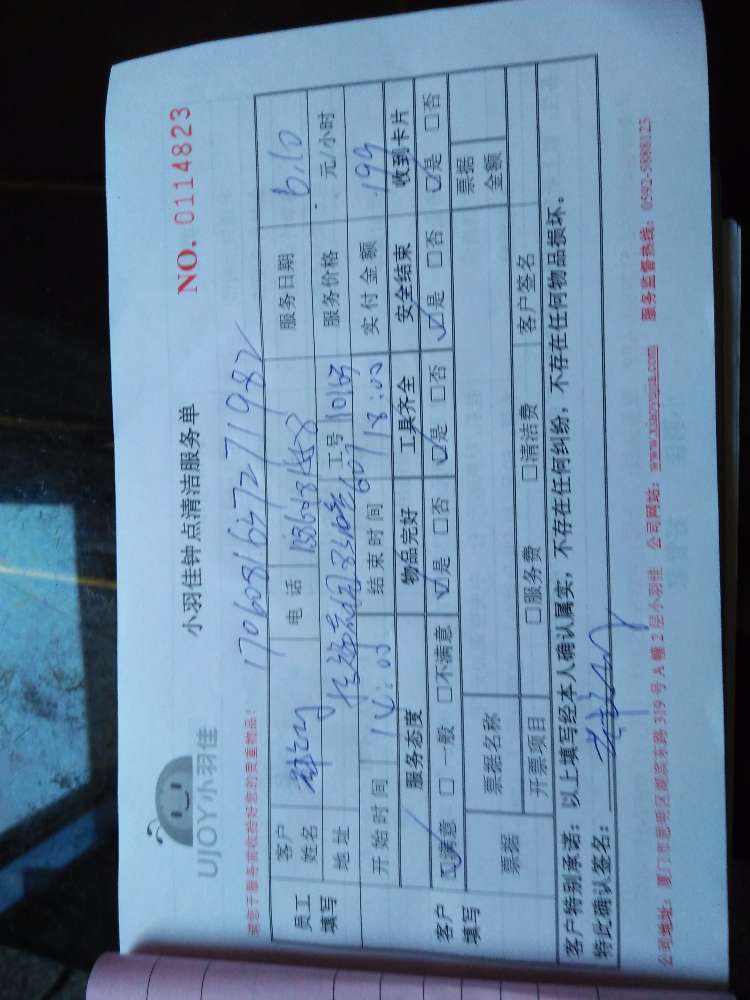 UJOY小羽佳
小羽佳钟点清洁服务单
NO. 0114823
请您于服务前收拾好您的贵重物品!
1706081647271982
员工填写
客户姓名
电话
服务日期 6.10
地址
工号
服务价格 元/小时
开始时间 14:00
结束时间 18:00
实付金额 199
客户填写
服务态度 物品完好 工具齐全 安全结束 收到卡片
☑满意 □一般 □不满意 ☑是 □否 ☑是 □否 ☑是 □否 ☑是 □否
票据
票据名称
票据金额
开票项目 □服务费 □清洁费 客户签名
客户特别承诺:以上填写经本人确认属实,不存在任何纠纷,不存在任何物品损坏。
特此确认签名:
公司地址:厦门市思明区湖滨东路319号A幢2层小羽佳 公司网站:www.xiaoyujia.com 服务监督热线:0592-5888123